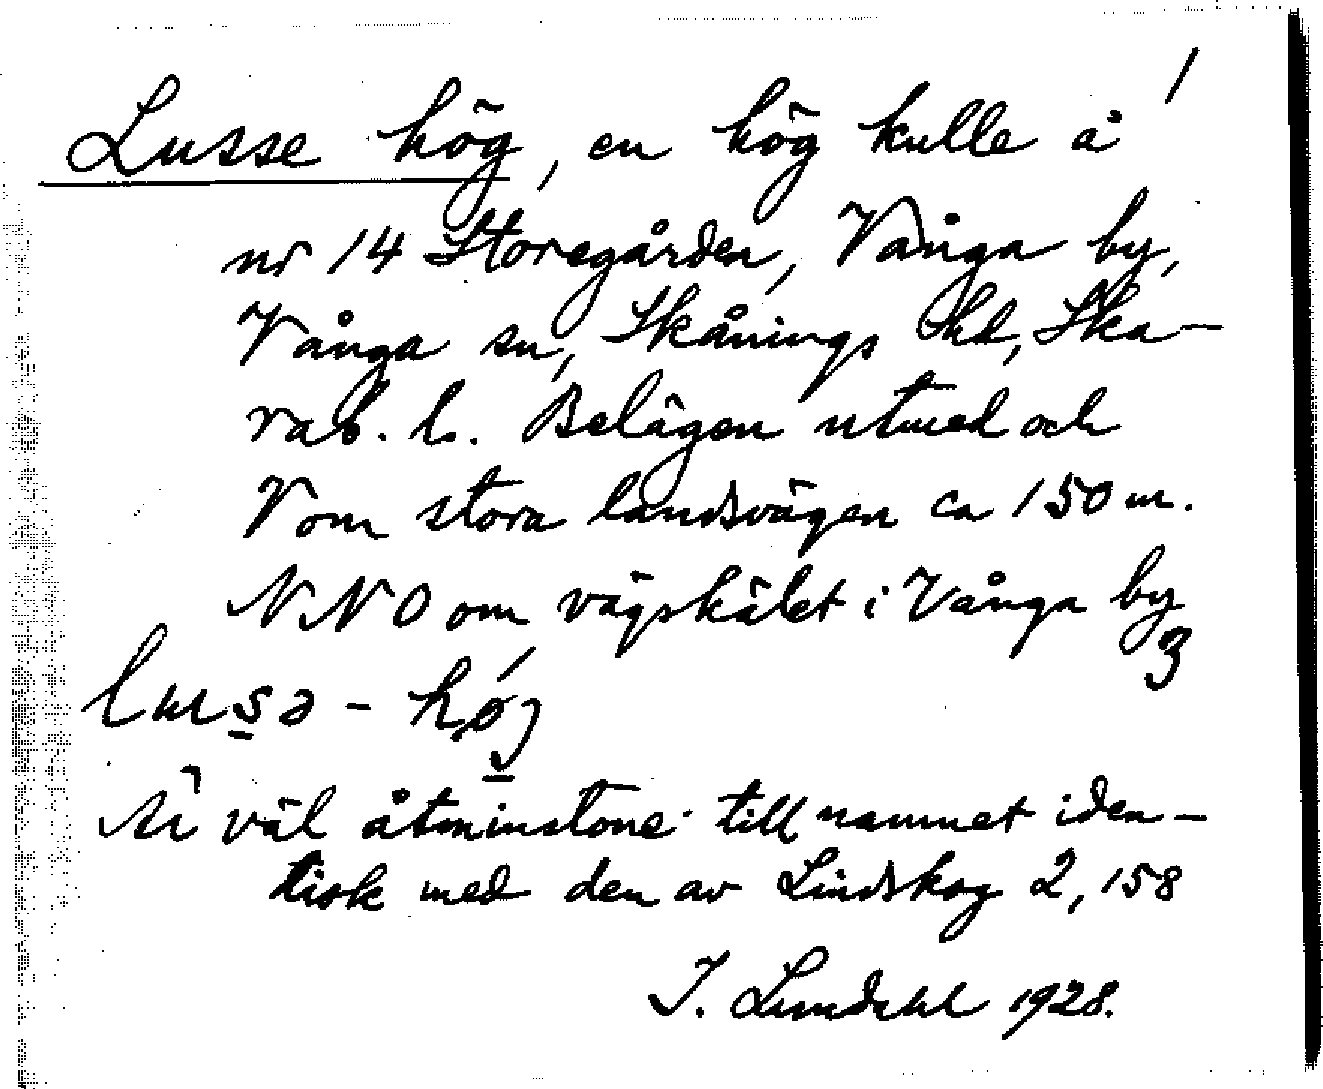 Lusse hög, en hög kulle å
nr 14 Storegården, Vånga by,
Vånga sn, Skånings hd, Ska-
rab. l. Belägen utmed och
V om stora landsvägen ca 150 m.
NNO om vägskälet i Vånga by
lusə - høj
Är väl åtminstone till namnet iden-
tisk med den av Lindskog 2, 158
I. Lundahl 1928.